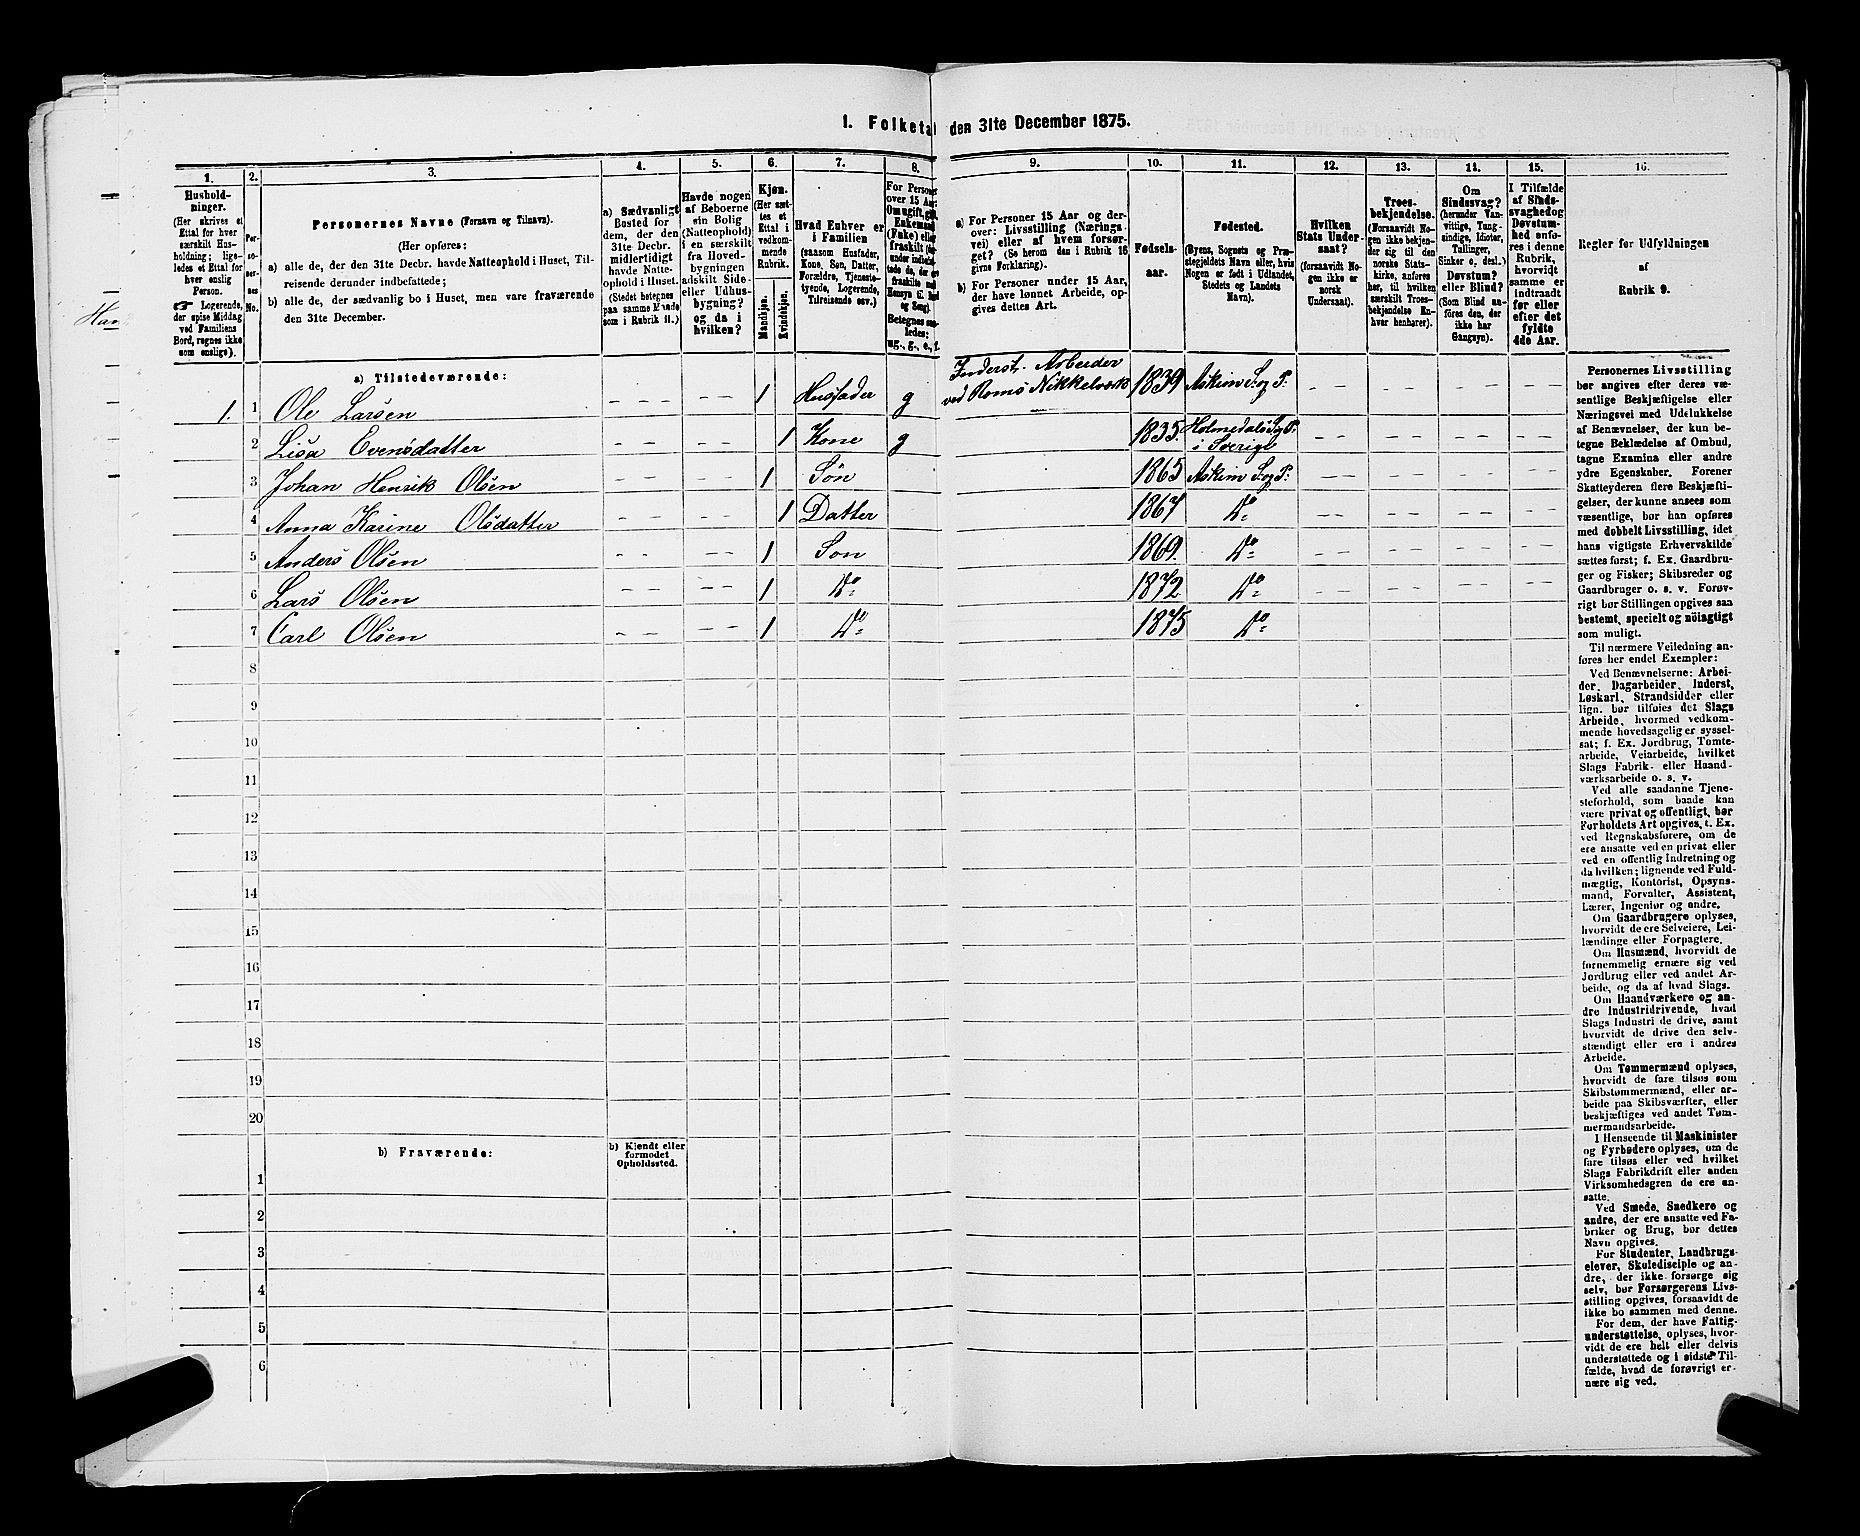 1. Folketal den 31te December 1875.
1.
2.
3.
4.
5.
6.
7.
8.
9.
10.
11.
12.
13.
14.
15.
16.
Hushold-
ninger.
(Her skrives et
Ettal for hver
særskilt Hus-
holdning; lige-
ledes et Ettal for
hver enslig
Person.
☛ Logerende,
der spise Middag
ved Familiens
Bord, regnes ikke
som enslige).
Per-
so-
ner-
nes
No.
Personernes Navne (Fornavn og Tilnavn).
(Her opføres:
a) alle de, der den 31te Decbr. havde Natteophold i Huset, Til-
reisende derunder indbefattede;
b) alle de, der sædvanlig bo i Huset, men vare fraværende
den 31te December.
a) Sædvanligt
Bosted for
dem, der den
31te Decbr.
midlertidigt
havde Natte-
ophold i Huset.
(Stedet betegnes
paa samme Maade
som i Rubrik 11.)
Havde nogen
af Beboerne
ein Bolig
(Natteophold)
i en særskilt
fra Hoved-
bygningen
adskilt Side-
eller Udhus-
bygning?
og da i
hvilken?
Kjøn.
(Her sæt-
tes et
Ettal i
vedkom-
mende
Rubrik.
Mandkjøn.
Kvindekjøn.
Hvad Enhver er
i Familien
(saasom Husfader,
Kone, Søn, Datter,
Forældre, Tjeneste-
tyende, Logerende,
Tilreisende osv.)
For Personer
over 15 Aar
Om ugift, gift,
Enkemand
(Enke) eller
fraskilt
Betegnes saa-
ledes:
ug., g., e., f.
a) For Personer 15 Aar og der-
over: Livsstilling (Nærings-
vei) eller af hvem forsør-
get? (Se herom den i Rubrik 16
givne Forklaring).
b) For Personer under 15 Aar,
der have lønnet Arbeide, op-
gives dettes Art.
Fødsels-
aar.
Fødested.
(Byens, Sognets og Præ-
stegjeldets Navn eller, hvis
Nogen er født i Udlandet,
Stedets og Landets
Navn).
Hvilken
Stats Under-
saat?
(forsaavidt No-
gen ikke er
norsk
Undersaat).
Troes-
bekjendelse.
(Forsaavidt No-
gen ikke bekjen-
der sig til den
norske Stats-
kirke, anføres
her, til hvilken
særskilt Troes-
bekjendelse En-
hver henhører).
Om
Sindssvag?
(herunder Van-
vittige, Tung-
sindige, Idioter,
Tullinger,
Sinker o. desl.)
Døvstum?
eller Blind?
(Som Blind an-
føres den, der
ikke har
Gangsyn).
I Tilfælde
af Sinds-
svaghed og
Døvstum-
hed anfø-
res i denne
Rubrik,
hvorvidt
samme er
indtraadt
før eller
efter det
fyldte
4de Aar.
Regler for Udfyldningen
af
Rubrik 9.
a) Tilstedeværende:
1. 1 Ole Larsen - - - - 1 Husfader g Inderst. Arbeider ved Roms Nikkelværk 1839 Askim S. og P. - - - - - -
2 Lisa Evensdatter - - - - 1 Kone g 1835. Holmedals S. og P. i Sverige - - - - - -
3 Johan Henrik Olsen - - - - 1 Søn 1865 Askim S. og P. - - - - - -
4 Anna Karine Olsdatter - - - - 1 Datter 1867 Do - - - - - -
5 Anders Olsen - - - - 1 Søn 1869. Do - - - - - -
6 Lars Olsen - - - - 1 Do 1872 Do - - - - - -
7 Carl Olsen - - - - 1 Do 1875 Do
8
9
10
11
12
13
14
15
16
17
18
19
20
b) Fraværende:
b) Kjendt eller
formodet
Opholdssted.
1
2
3
4
5
6
Personernes Livsstilling
bør angives efter deres væ-
sentlige Beskjæftigelse eller
Næringsvei med Udelukkelse
af Benævnelser, der kun be-
tegne Beklædelse af Ombud,
tagne Examina eller andre
ydre Egenskaber. Forener
Skatteyderen flere Beskjæfti-
gelser, der kunne ansees som
væsentlige, bør han opføres
med dobbelt Livsstilling, idet
hans vigtigste Erhvervskilde
sættes først; f. Ex. Gaardbru-
ger og Fisker; Skibsreder og
Gaardbruger o. s. v. Forøv-
rigt bør Stillingen opgives saa
bestemt, specielt og nöiagtigt
som muligt.
Til nærmere Veiledning an-
føres her endel Exempler:
Ved Benævnelserne: Arbei-
der, Dagarbeider, Inderst,
Løskarl, Strandsidder eller
lign. bør tilføies det Slags
Arbeide, hvormed vedkom-
mende hovedsagelig er syssel-
sat; f. Ex. Jordbrug, Tomte-
arbeide, Veiarbeide, hvilket
Slags Fabrik- eller Haand-
værksarbeide o. s. v.
Ved alle saadanne Tjene-
steforhold, som baade kan
være privat og offentligt, bør
Forholdets Art opgives, t. Ex.
ved Regnskabsførere, om de
ere ansatte ved en privat eller
ved en offentlig Indretning og
da hvilken; lignende ved Fuld-
mægtig, Kontorist, Opsyns-
mand, Forvalter, Assistent,
Lærer, Ingeniør og andre.
Om Gaardbrugere oplyses,
hvorvidt de ere Selveiere, Lei-
lændinge eller Forpagtere.
Om Husmænd, hvorvidt de
fornemmelig ernære sig ved
Jordbrug eller ved andet Ar-
beide, og da af hvad Slags.
Om Haandværkere og an-
dre Industridrivende, hvad
Slags Industri de drive, samt
hvorvidt de drive den selv-
stændigt eller ere i andres
Arbeide.
Om Tømmermænd oplyses,
hvorvidt de fare tilsøs som
Skibstømmermænd, eller ar-
beide paa Skibsværfter, eller
beskjæftiges ved andet Tøm-
mermandsarbeide.
I Henseende til Maskinister
og Fyrbødere oplyses, om de
fare tilsøs eller ved hvilket
Slags Fabrikdrift eller anden
Virksomhedsgren de ere an-
satte.
Ved Smede, Snedkere og
andre, der ere ansatte ved Fa-
briker og Brug, bør dettes
Navn opgives.
For Studenter, Landbrugs-
elever, Skoledisciple og an-
dre, der ikke forsørge sig
selv, bør Forsørgerens Livs-
stilling opgives, forsaavidt de
ikke bo sammen med denne.
For dem, der have Fattig-
understøttelse, oplyses, hvor-
vidt de ere helt eller delvis
understøttede og i sidste Til-
fælde, hvad de forøvrigt er-
nære sig ved.